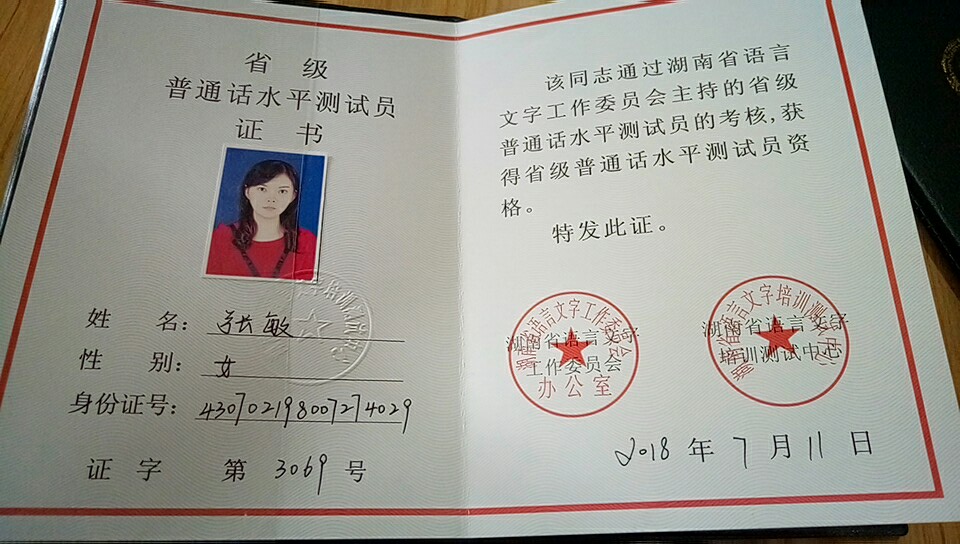 省级
普通话水平测试员
证书
姓名：张敏
性别：女
身份证号：430702198007274029
证字第3069号
该同志通过湖南省语言
文字工作委员会主持的省级
普通话水平测试员的考核，获
得省级普通话水平测试员资
格。
特发此证。
湖南省语言文字
工作委员会
办公室
湖南省语言文字
培训测试中心
2018年7月11日